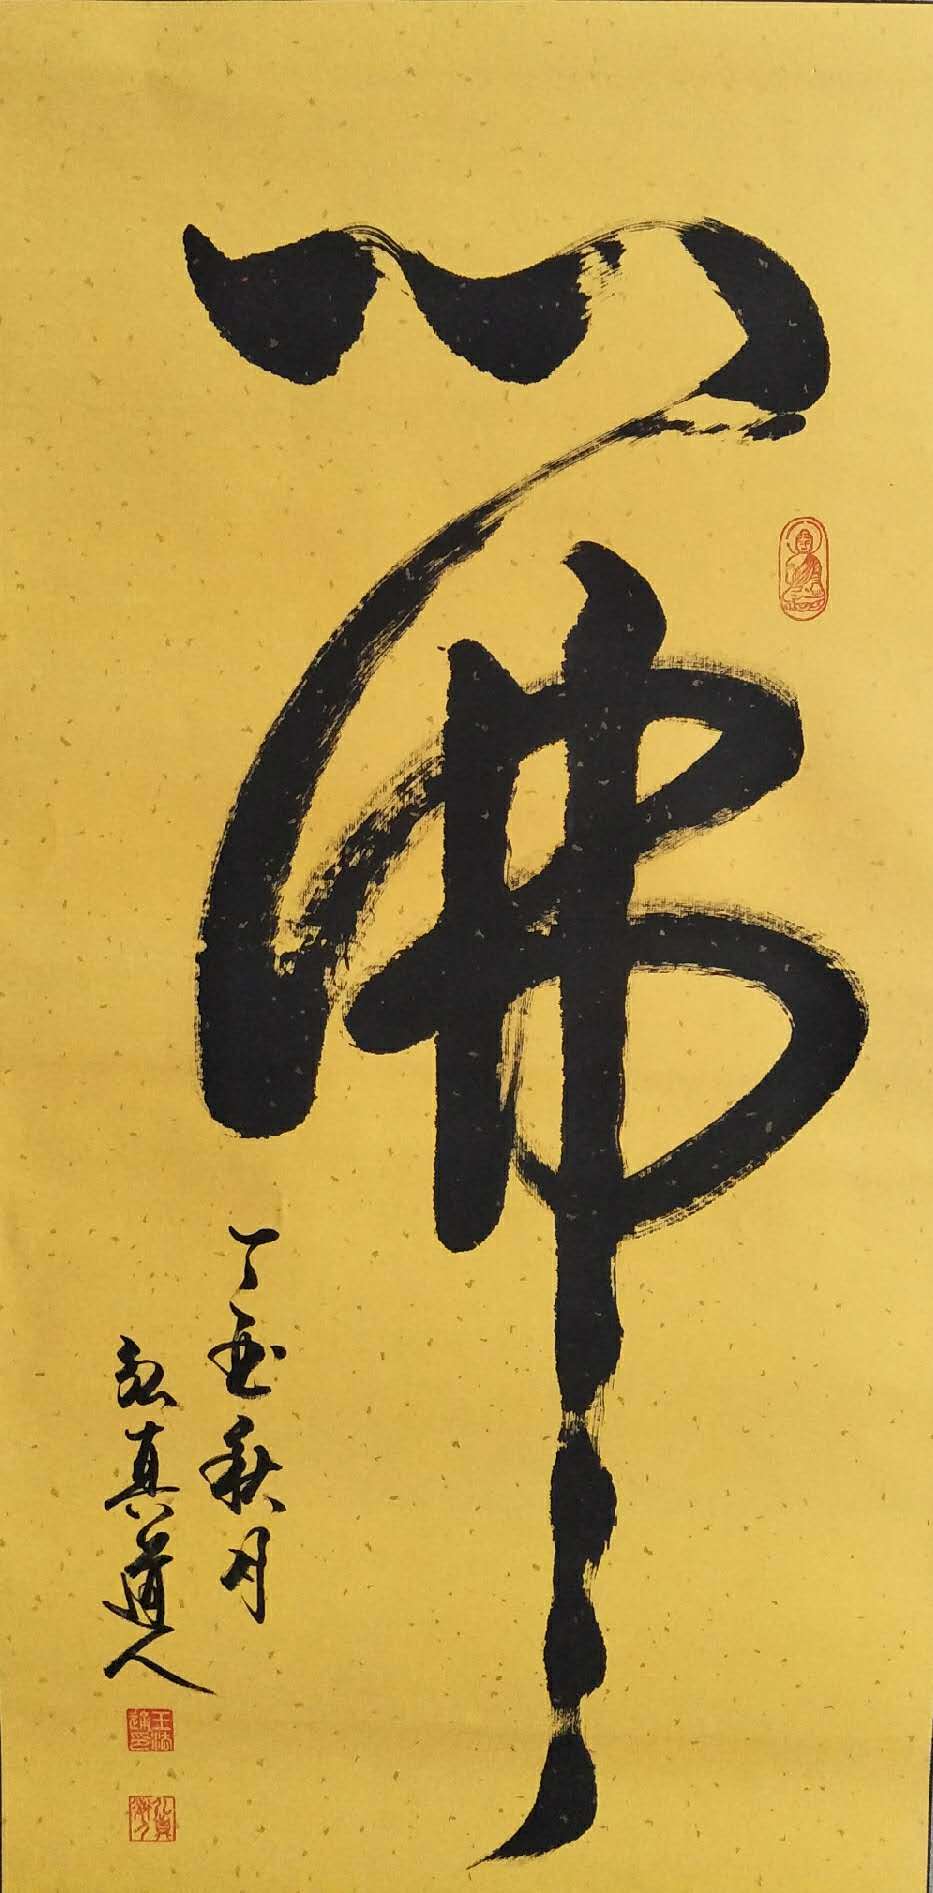 心佛
丁酉秋月
真道人